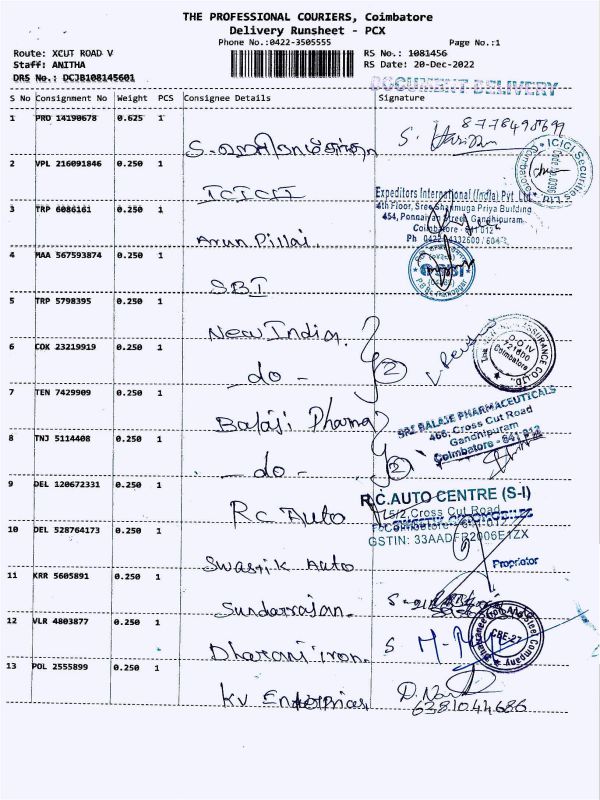 THE PROFESSIONAL COURIERS, Coimbatore
Delivery Runsheet - PCX
Phone No.:0422-3505555 Page No.:1
Route: XCUT ROAD V RS No.: 1081456
Staff: ANITHA RS Date: 20-Dec-2022
DRS No.: DCJB108145601
DOCUMENT DELIVERY
S No Consignment No Weight PCS Consignee Details Signature
1 PRO 14190678 0.625 1
S.
2 VPL 216091846 0.250 1 ICICI
ICICI Securities Ltd
3 TRP 6086161 0.250 1 Arun Pillai.
Expeditors International (India) Pvt. Ltd.
4th Floor, Sree Shanmuga Priya Building
454, Ponnaiyan Street, Gandhipuram
Coimbatore - 641 012
4 MAA 567593874 0.250 1 SBI
5 TRP 5798395 0.250 1 New India.
6 COK 23219919 0.250 1 - do - 2
721600
Coimbatore
7 TEN 7429909 0.250 1 Balaji Pharma
SRI BALAJE PHARMACEUTICALS
466, Cross Cut Road
Gandhipuram
Coimbatore - 641 012
8 TNJ 5114408 0.250 1 - do - 2
9 DEL 120672331 0.250 1 R.C Auto
R.C.AUTO CENTRE (S-I)
Cross Cut Road
10 DEL 528764173 0.250 1 Swastik Auto
Proprietor
11 KRR 5605891 0.250 1 Sundarrajan.
12 VLR 4803877 0.250 1 Dharani iron.
CBE-27
13 POL 2555899 0.250 1 KV Enterprises
6381044686